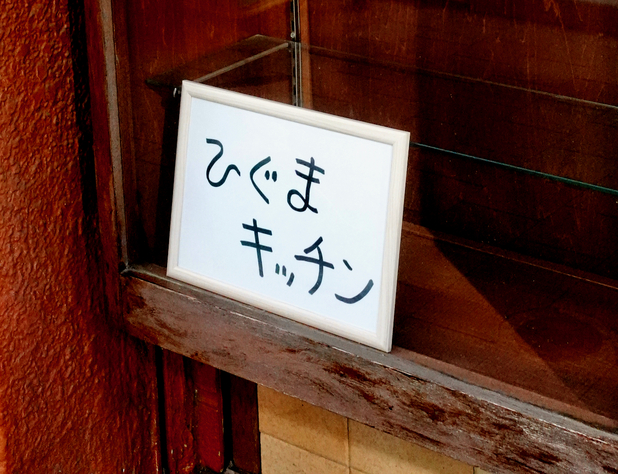 ひぐま
キッチン